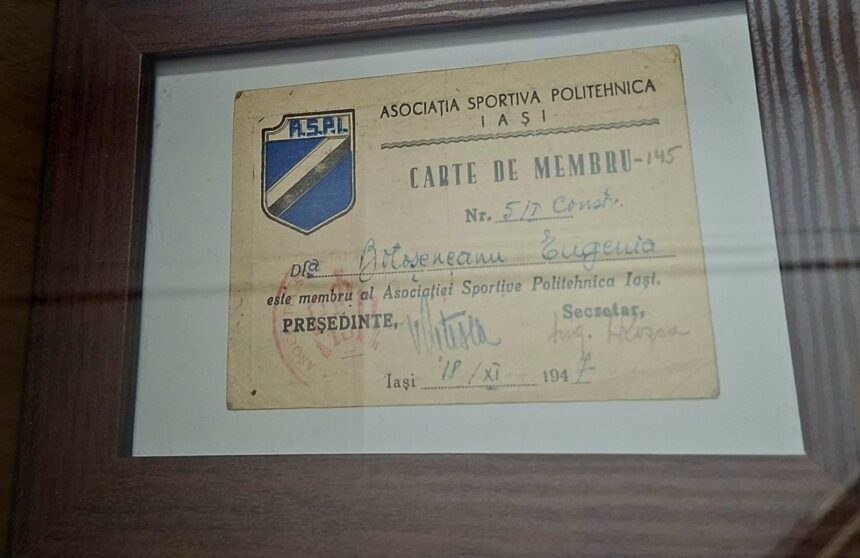 A.S.P.I.
ASOCIAȚIA SPORTIVA POLITEHNICA
IAȘI
CARTE DE MEMBRU-145
Nr. 5/I Constr.
D[ra] Botoșeneanu Eugenia
este membru al Asociației Sportive Politehnica Iași.
PREȘEDINTE, Secretar,
Ing.
Iași 18/XI 1947